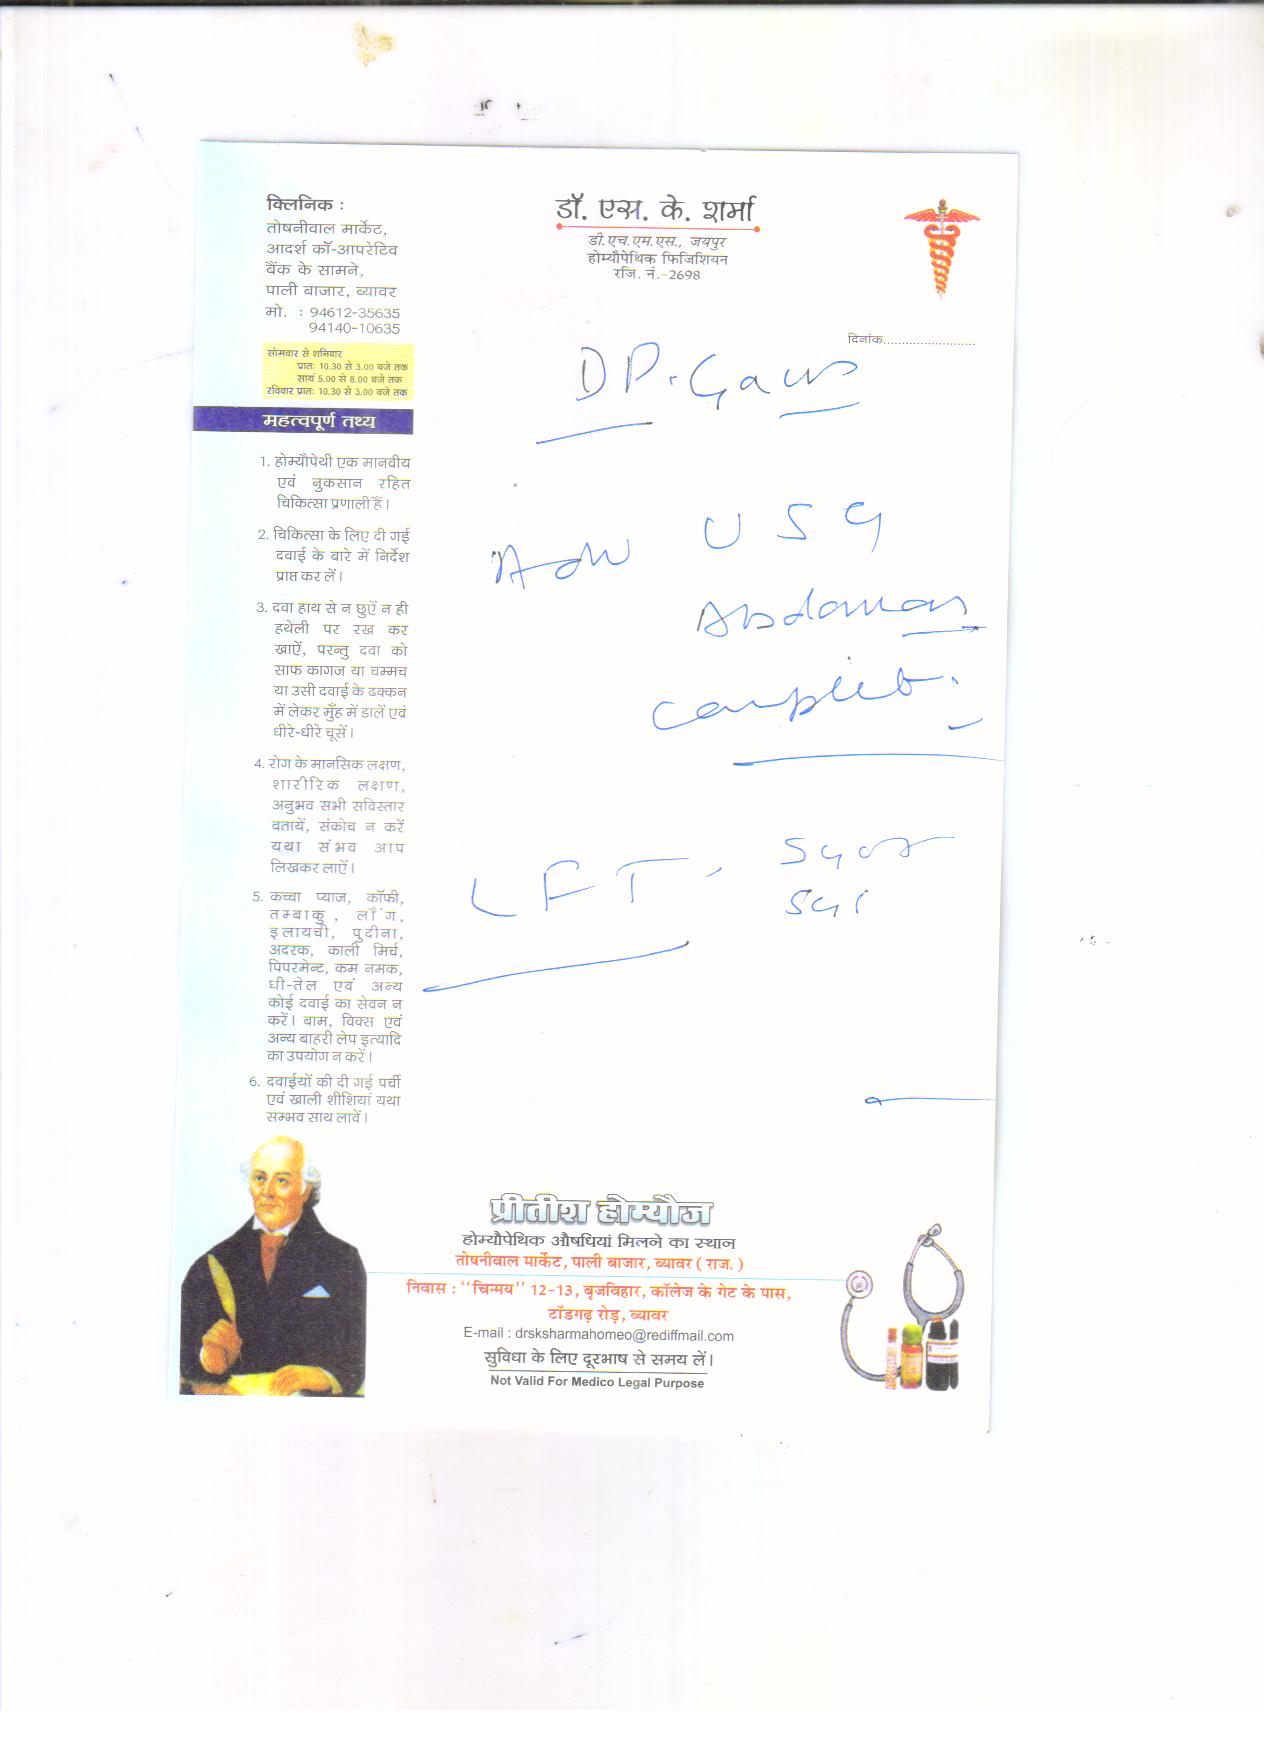 क्लिनिक :
तोषनीवाल मार्केट,
आदर्श कॉ-आपरेटिव
बैंक के सामने,
पाली बाजार, ब्यावर
मो. : 94612-35635
94140-10635
सोमवार से शनिवार
प्रातः 10.30 से 3.00 बजे तक
सायं 5.00 से 8.00 बजे तक
रविवार प्रातः 10.30 से 3.00 बजे तक
महत्वपूर्ण तथ्य
1. होम्यौपेथी एक मानवीय
एवं नुकसान रहित
चिकित्सा प्रणाली हैं।
2. चिकित्सा के लिए दी गई
दवाई के बारे में निर्देश
प्राप्त कर लें।
3. दवा हाथ से न छुऐं न ही
हथेली पर रख कर
खाऐं, परन्तु दवा को
साफ कागज या चम्मच
या उसी दवाई के ढक्कन
में लेकर मुँह में डालें एवं
धीरे-धीरे चूसें।
4. रोग के मानसिक लक्षण,
शारीरिक लक्षण,
अनुभव सभी सविस्तार
बतायें, संकोच न करें
यथा संभव आप
लिखकर लाऐं।
5. कच्चा प्याज, कॉफी,
तम्बाकु, लौंग,
इलायची, पुदीना,
अदरक, काली मिर्च,
पिपरमेन्ट, कम नमक,
घी-तेल एवं अन्य
कोई दवाई का सेवन न
करें। बाम, विक्स एवं
अन्य बाहरी लेप इत्यादि
का उपयोग न करें।
6. दवाईयों की दी गई पर्ची
एवं खाली शीशियां यथा
सम्भव साथ लावें।
डॉ. एस. के. शर्मा
डी.एच.एम.एस., जयपुर
होम्यौपेथिक फिजिशियन
रजि. नं.-2698
दिनांक.........................
DP.
Adv USG
Abdoman
Complet.
LFT, SGOT
प्रीतीश होम्यौज
होम्यौपेथिक औषधियां मिलने का स्थान
तोषनीवाल मार्केट, पाली बाजार, ब्यावर ( राज. )
निवास : ''चिन्मय'' 12-13, बृजविहार, कॉलेज के गेट के पास,
टॉडगढ़ रोड़, ब्यावर
E-mail : drsksharmahomeo@rediffmail.com
सुविधा के लिए दूरभाष से समय लें।
Not Valid For Medico Legal Purpose